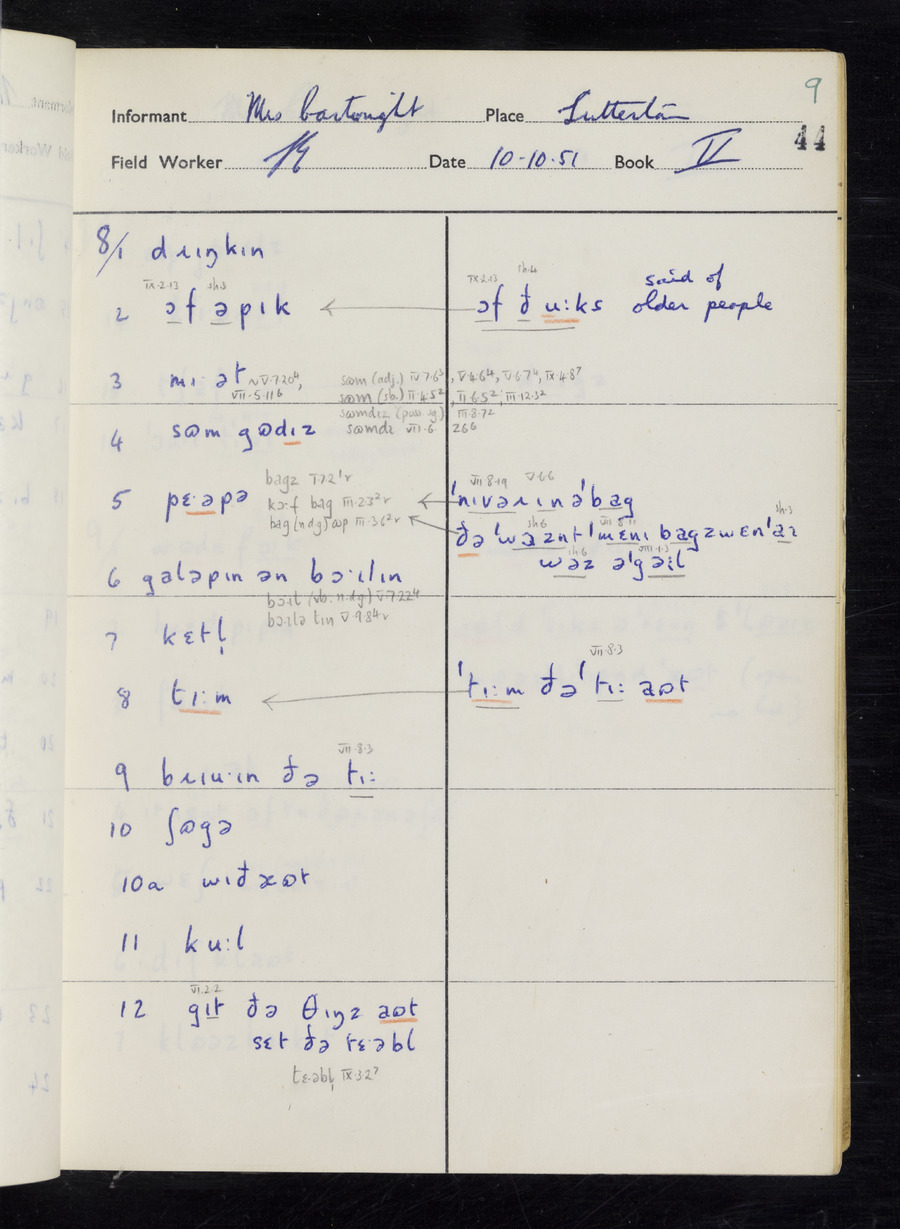 9
44
Informant Mrs Cartwright Place Sutterton
Field Worker Date 10-10-51 Book V
8/1 dɹɪŋkɪn
IX·2·13 sh·3 IX·2·13 sh·4
2 ɔf əpɪk ɔf ð u:ks said of older people
3 mɪ·ət ~V·7·20⁴, VII·5·11⁶
sɷm (adj.) IV·7·6³, V·4·6⁴, V·6·7⁴, IX·4·8⁷
sɷm (sb.) II·4·5², II·6·5², III·12·3²
sɷmdɪz (poss. sg) III·8·7²
4 sɷm gɷdɪz sɷmdɪ VII·6 26⁶
bagz V·7·2¹r VII·8·19 V·6·6
5 pɛ·əpə kɔ·f bag III·2·3²r ˈnɪvəɹɪnəˈbag
bag (n dg) ɷp III·3·6²r
sh·6 VII·8·11 sh·3
ðə ˈwaznt ˈmɛnɪ bagzwɛnˈaɪ
sh·6 VIII·1·3
wəz əˈgəɪl
6 galəpɪn ən bɔ·ɪlɪn
bɔɪt (vb. n.dg) V·7·22⁴
bɔɪlə tɪn V·9·8⁴r
7 kɛtl̩
VII·8·3
8 tɪ:m ˈtɪ:m ðə ˈtɪ: aɷt
VII·8·3
9 bɹɪu·ɪn ðə tɪ:
10 ʃɷgə
10a wɪðæɷt
11 ku:l
VI·2·2
12 gɪt ðə θɪŋz aɷt
sɛt ðə tɛ·əbl
tɛ·əbl̩ IX·3·2⁷